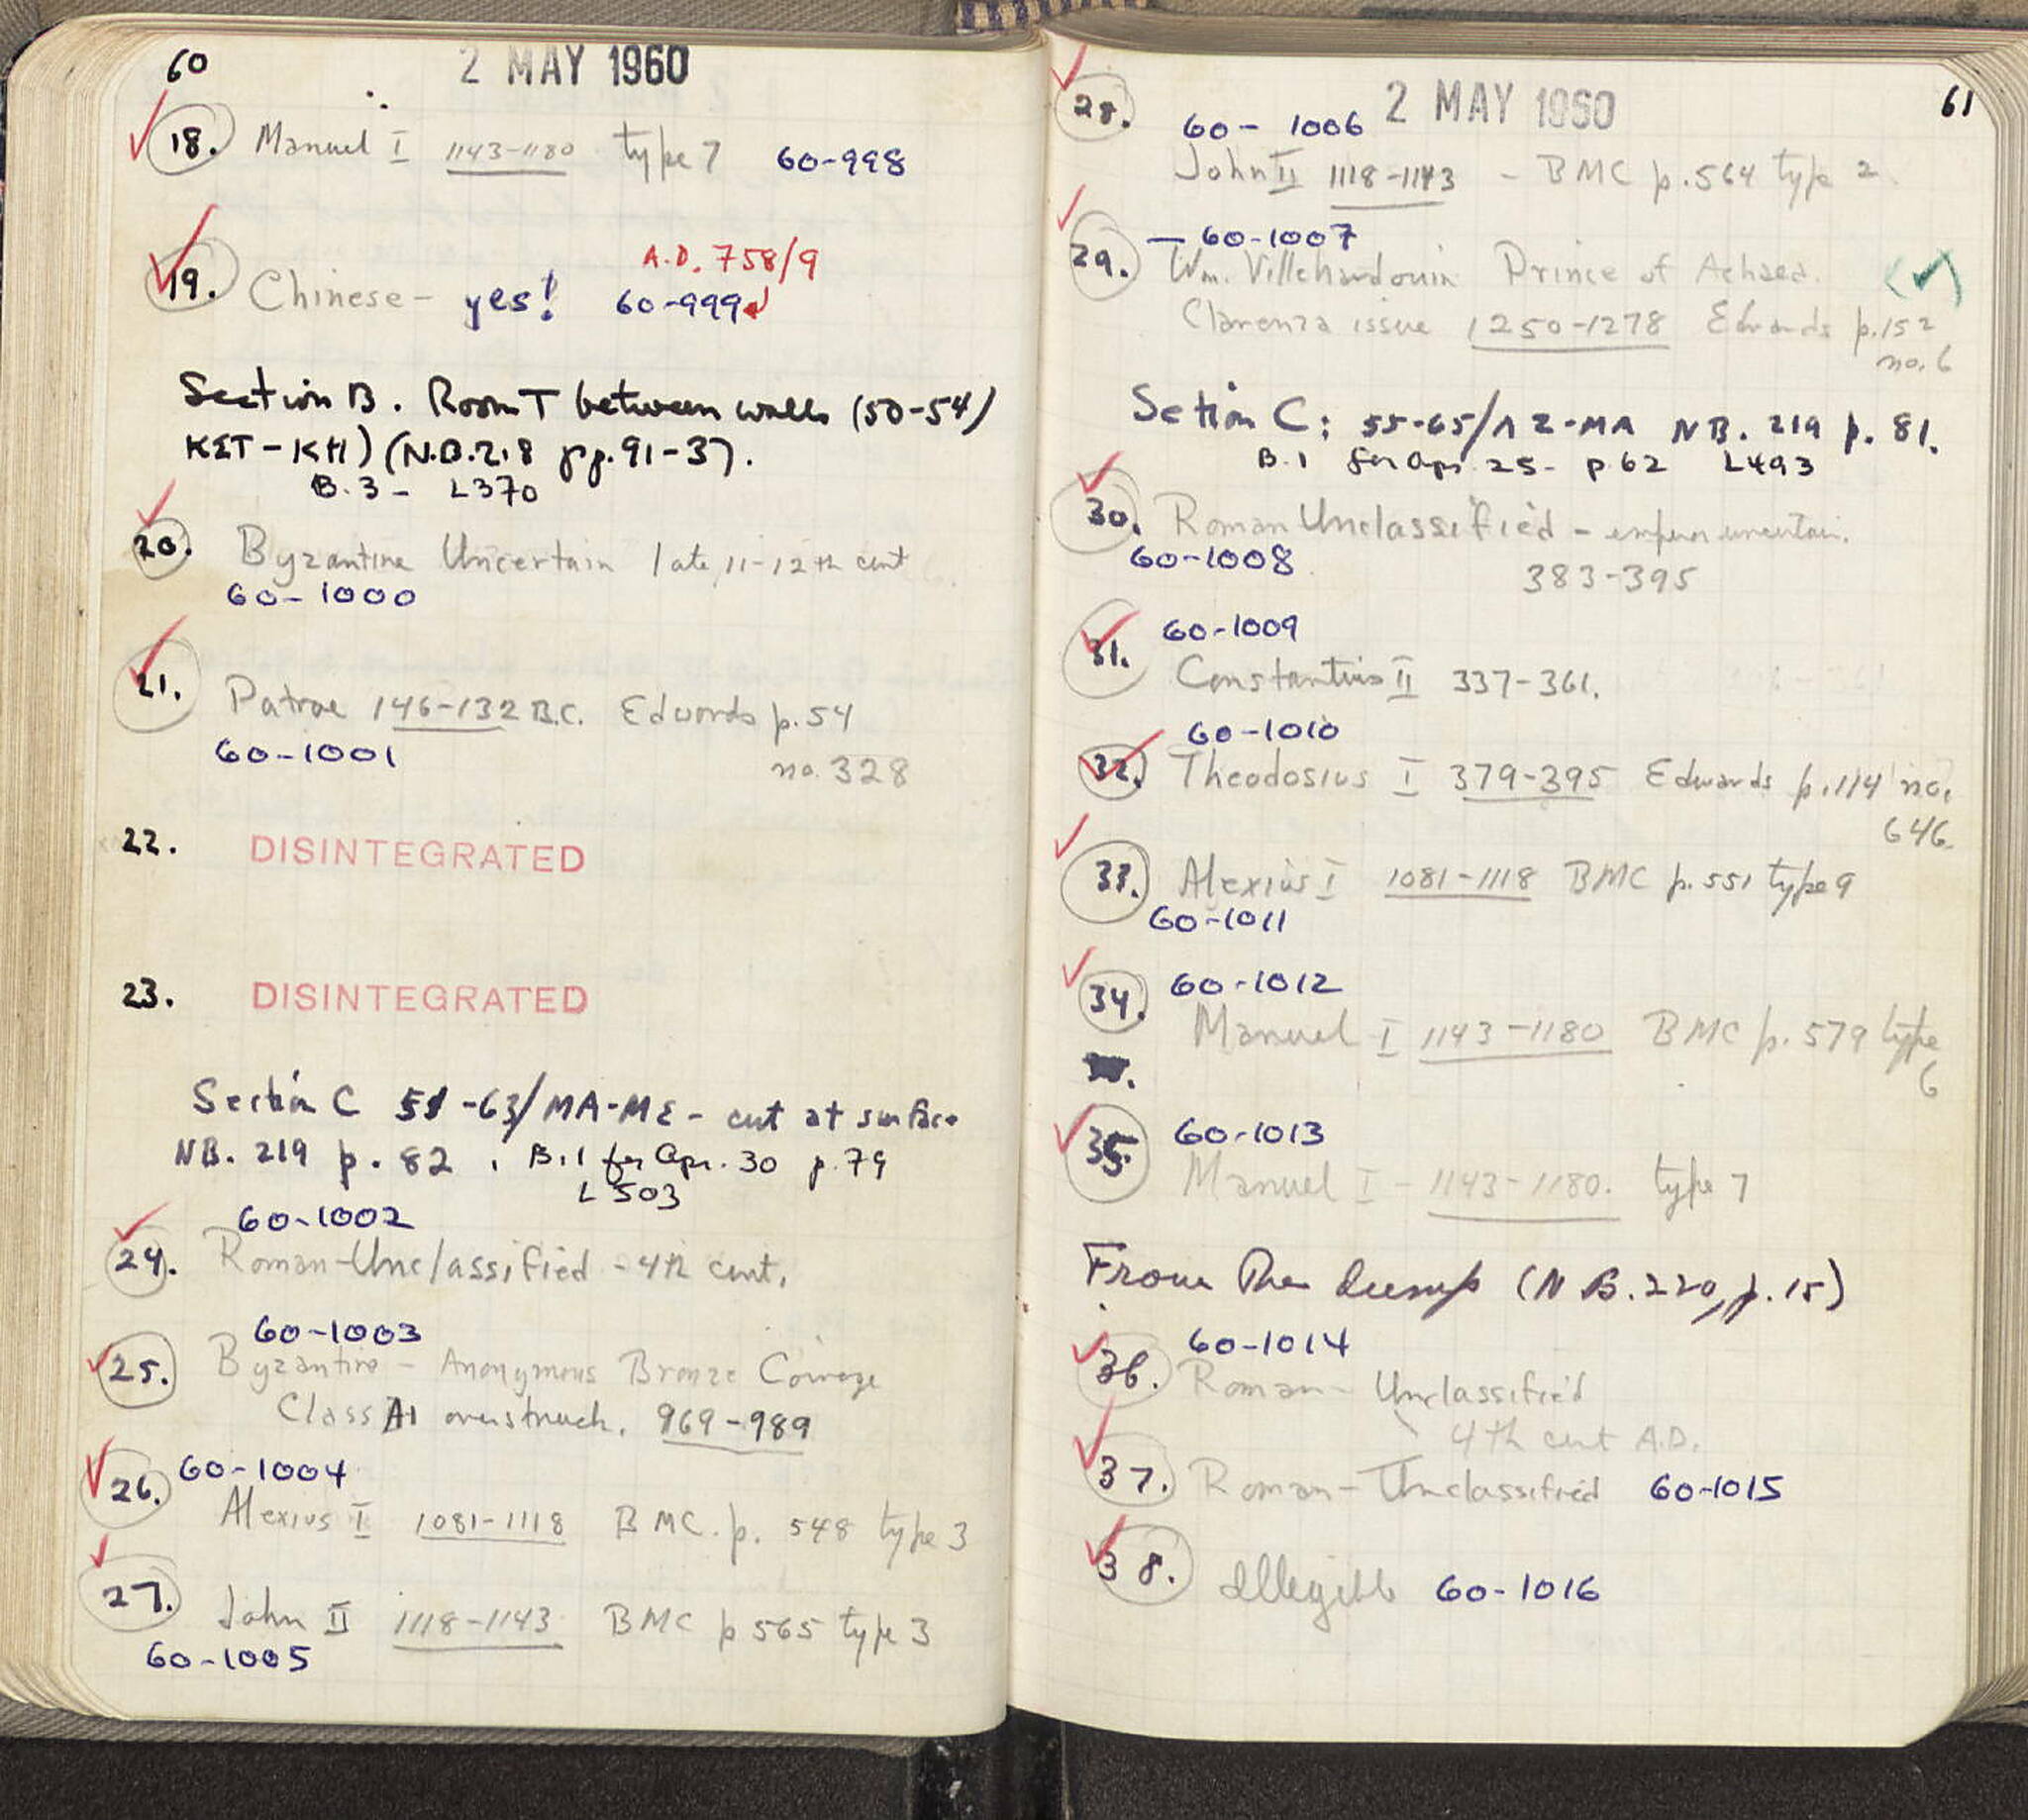 60
2 MAY 1960
18. Manuel I 1143-1180 type 7 60-998
A.D. 758/9
19. Chinese - yes! 60-999
Section B. Room T between walls (50-54/
KΣT-KH) (N.B. 218 pp. 91-37).
B.3 - L370
20. Byzantine Uncertain late 11-12th cent
60-1000
21. Patrae 146-132 B.C. Edwards p.54
60-1001 no. 328
22. DISINTEGRATED
23. DISINTEGRATED
Section C 51-63/MA-ME - cut at surface
NB. 219 p. 82, B.1 for Apr. 30 p. 79
L503
60-1002
24. Roman-Unclassified - 4th cent.
60-1003
25. Byzantine - Anonymous Bronze Coinage
Class A1 overstruck. 969-989
60-1004
26. Alexius I 1081-1118 BMC. p. 548 type 3
27. John II 1118-1143 BMC p 565 type 3
60-1005
61
2 MAY 1960
28. 60-1006
John II 1118-1143 - BMC p.564 type 2
60-1007
29. Wm. Villehardouin Prince of Achaea.
Clarenza issue 1250-1278 Edwards p.152
no. 6
Section C: 55-65/ΛZ-MA NB. 219 p. 81.
B.1 for Apr. 25- p 62 L493
30. Roman Unclassified - emperor uncertain.
60-1008 383-395
60-1009
31. Constantius II 337-361.
60-1010
32. Theodosius I 379-395 Edwards p.114 no.
646
33. Alexius I 1081-1118 BMC p. 551 type 9
60-1011
34. 60-1012
Manuel I 1143-1180 BMC p. 579 type
6
35. 60-1013
Manuel I - 1143-1180. type 7
From The dump (N B. 220, p. 15)
60-1014
36. Roman- Unclassified
4th cent A.D.
37. Roman - Unclassified 60-1015
38. Illegible 60-1016